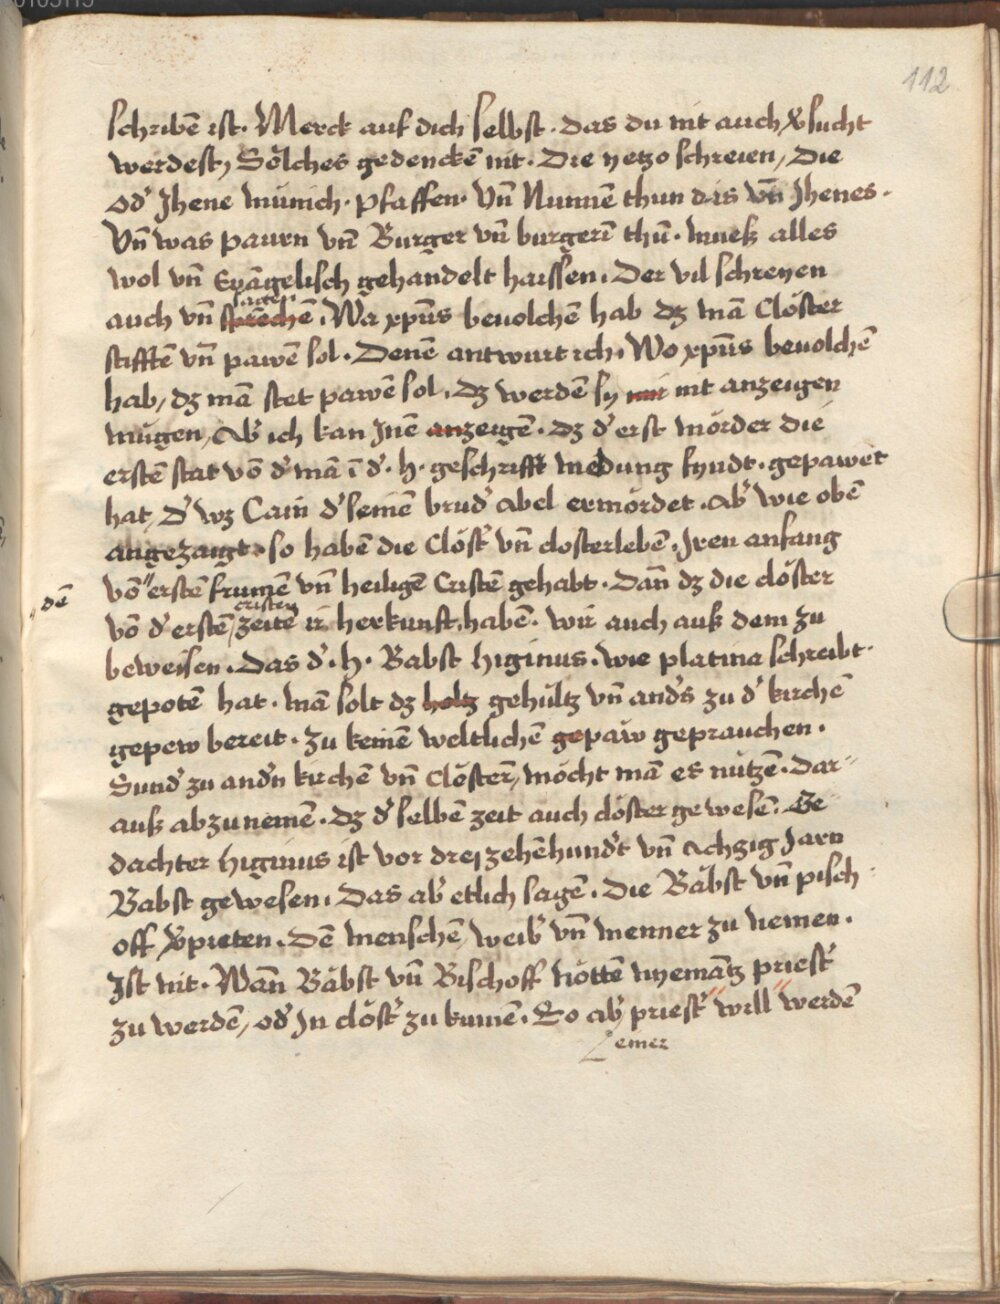 112
schribē ist. Merck auf dich selbst. das du nit auch v̉sucht
werdest, Sölches gedenckē nit. Die yetzo schreien, Die
od̉ Jhene münich. pfaffen. Vn̄ Nunnē thun das vn̄ Jhenes.
Vn̄ was paurn vn̄ Burger vn̄ burgerī thū. muesz alles
wol vn̄ Evāgelisch gehandelt haissen. Der vil schreyen
sagen
auch vn̄ sprechē. Wa xpūs beuolchē hab dz mā Clöster
stifftē vn̄ pawē sol. Denē antwurt ich. Wo xpūs beuolchē
hab, dz mā stet pawē sol. dz werden sy mir nit anzeigen
mügen, Ab̉ ich kan Jnē anzeigē. dz d̉ erst mörder die
erstē stat vō d̉ mā ī d̉ .h. geschrifft meldung fyndt. gepawet
hat, d̉ wz Cain d̉ seinē brud̉ Abel ermördet. Ab̉ wie obē
angezaigt. so haben die Clöst̉ vn̄ closterlebē. Jren anfang
dē
vō erstē frumē vn̄ heiligē Cristē gehabt. Dan̄ dz die clöster
cristen
vō d̉ erstē zeite ir herkunft habē. wir auch ausz dem zu
beweisen. Das d̉ .h. Babst Higinus. wie platina schreibt.
gepotē hat. mā solt dz holtz gehültz vn̄ and̉s zu d̉ kirchē
gepew bereit. zu keinē weltlichē gepäw geprauchen.
Sund̉ zu and̉n kirchē vn̄ Clöstern, möcht mā es nützē. dar-
ausz abzunemē. dz d̉ selbē zeit auch clöster gewesē. Ge
dachter Higinus ist vor dreyzehēhund̉t vn̄ Achzig Jarn
Babst gewesen. Das ab̉ etlich sagē. Die Bäbst vn̄ pisch
off v̉pieten. Dē menschē, weib̉ vn̄ menner zu nemen.
Ist nit. Wan̄ Bäbst vn̄ Bischoff nöttē nyemātz priest̉
zu werdē, od̉ Jn clöst̉ zu kumē. So ab̉ priest̉ will werdē
einer